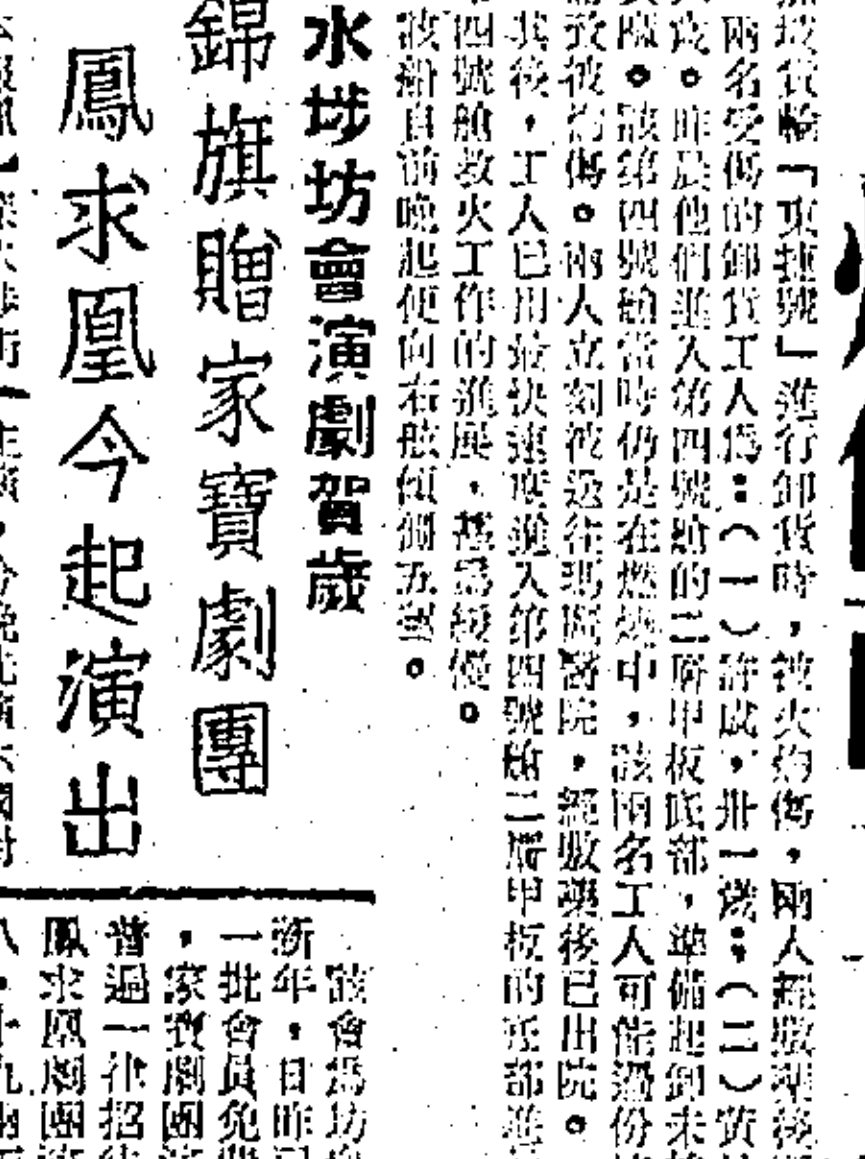 貨輪「東捷號」進行卸貨時，被火灼傷，兩人經敷藥後
兩名受傷的卸貨工人為：（一）許成，卅一歲；（二）黃
。昨晨他們進入第四號艙的二層甲板底部，準備起卸未
。該第四號艙當時仍是在燃燒中，該兩名工人可能過份
致被灼傷。兩人立刻被送往瑪麗醫院，經敷藥後已出院。
其後，工人已用最快速度進入第四號艙二層甲板的底部進
四號艙救火工作的進展，甚為緩慢。
該船自前晚起便向右舷傾側五度。
水埗坊會演劇賀歲
錦旗贈家寶劇團
鳳求凰今起演出
該會為坊
新年，日昨
一批會員免費
，家寶劇團
普遍一律招待
鳳求凰劇團
主演，今晚